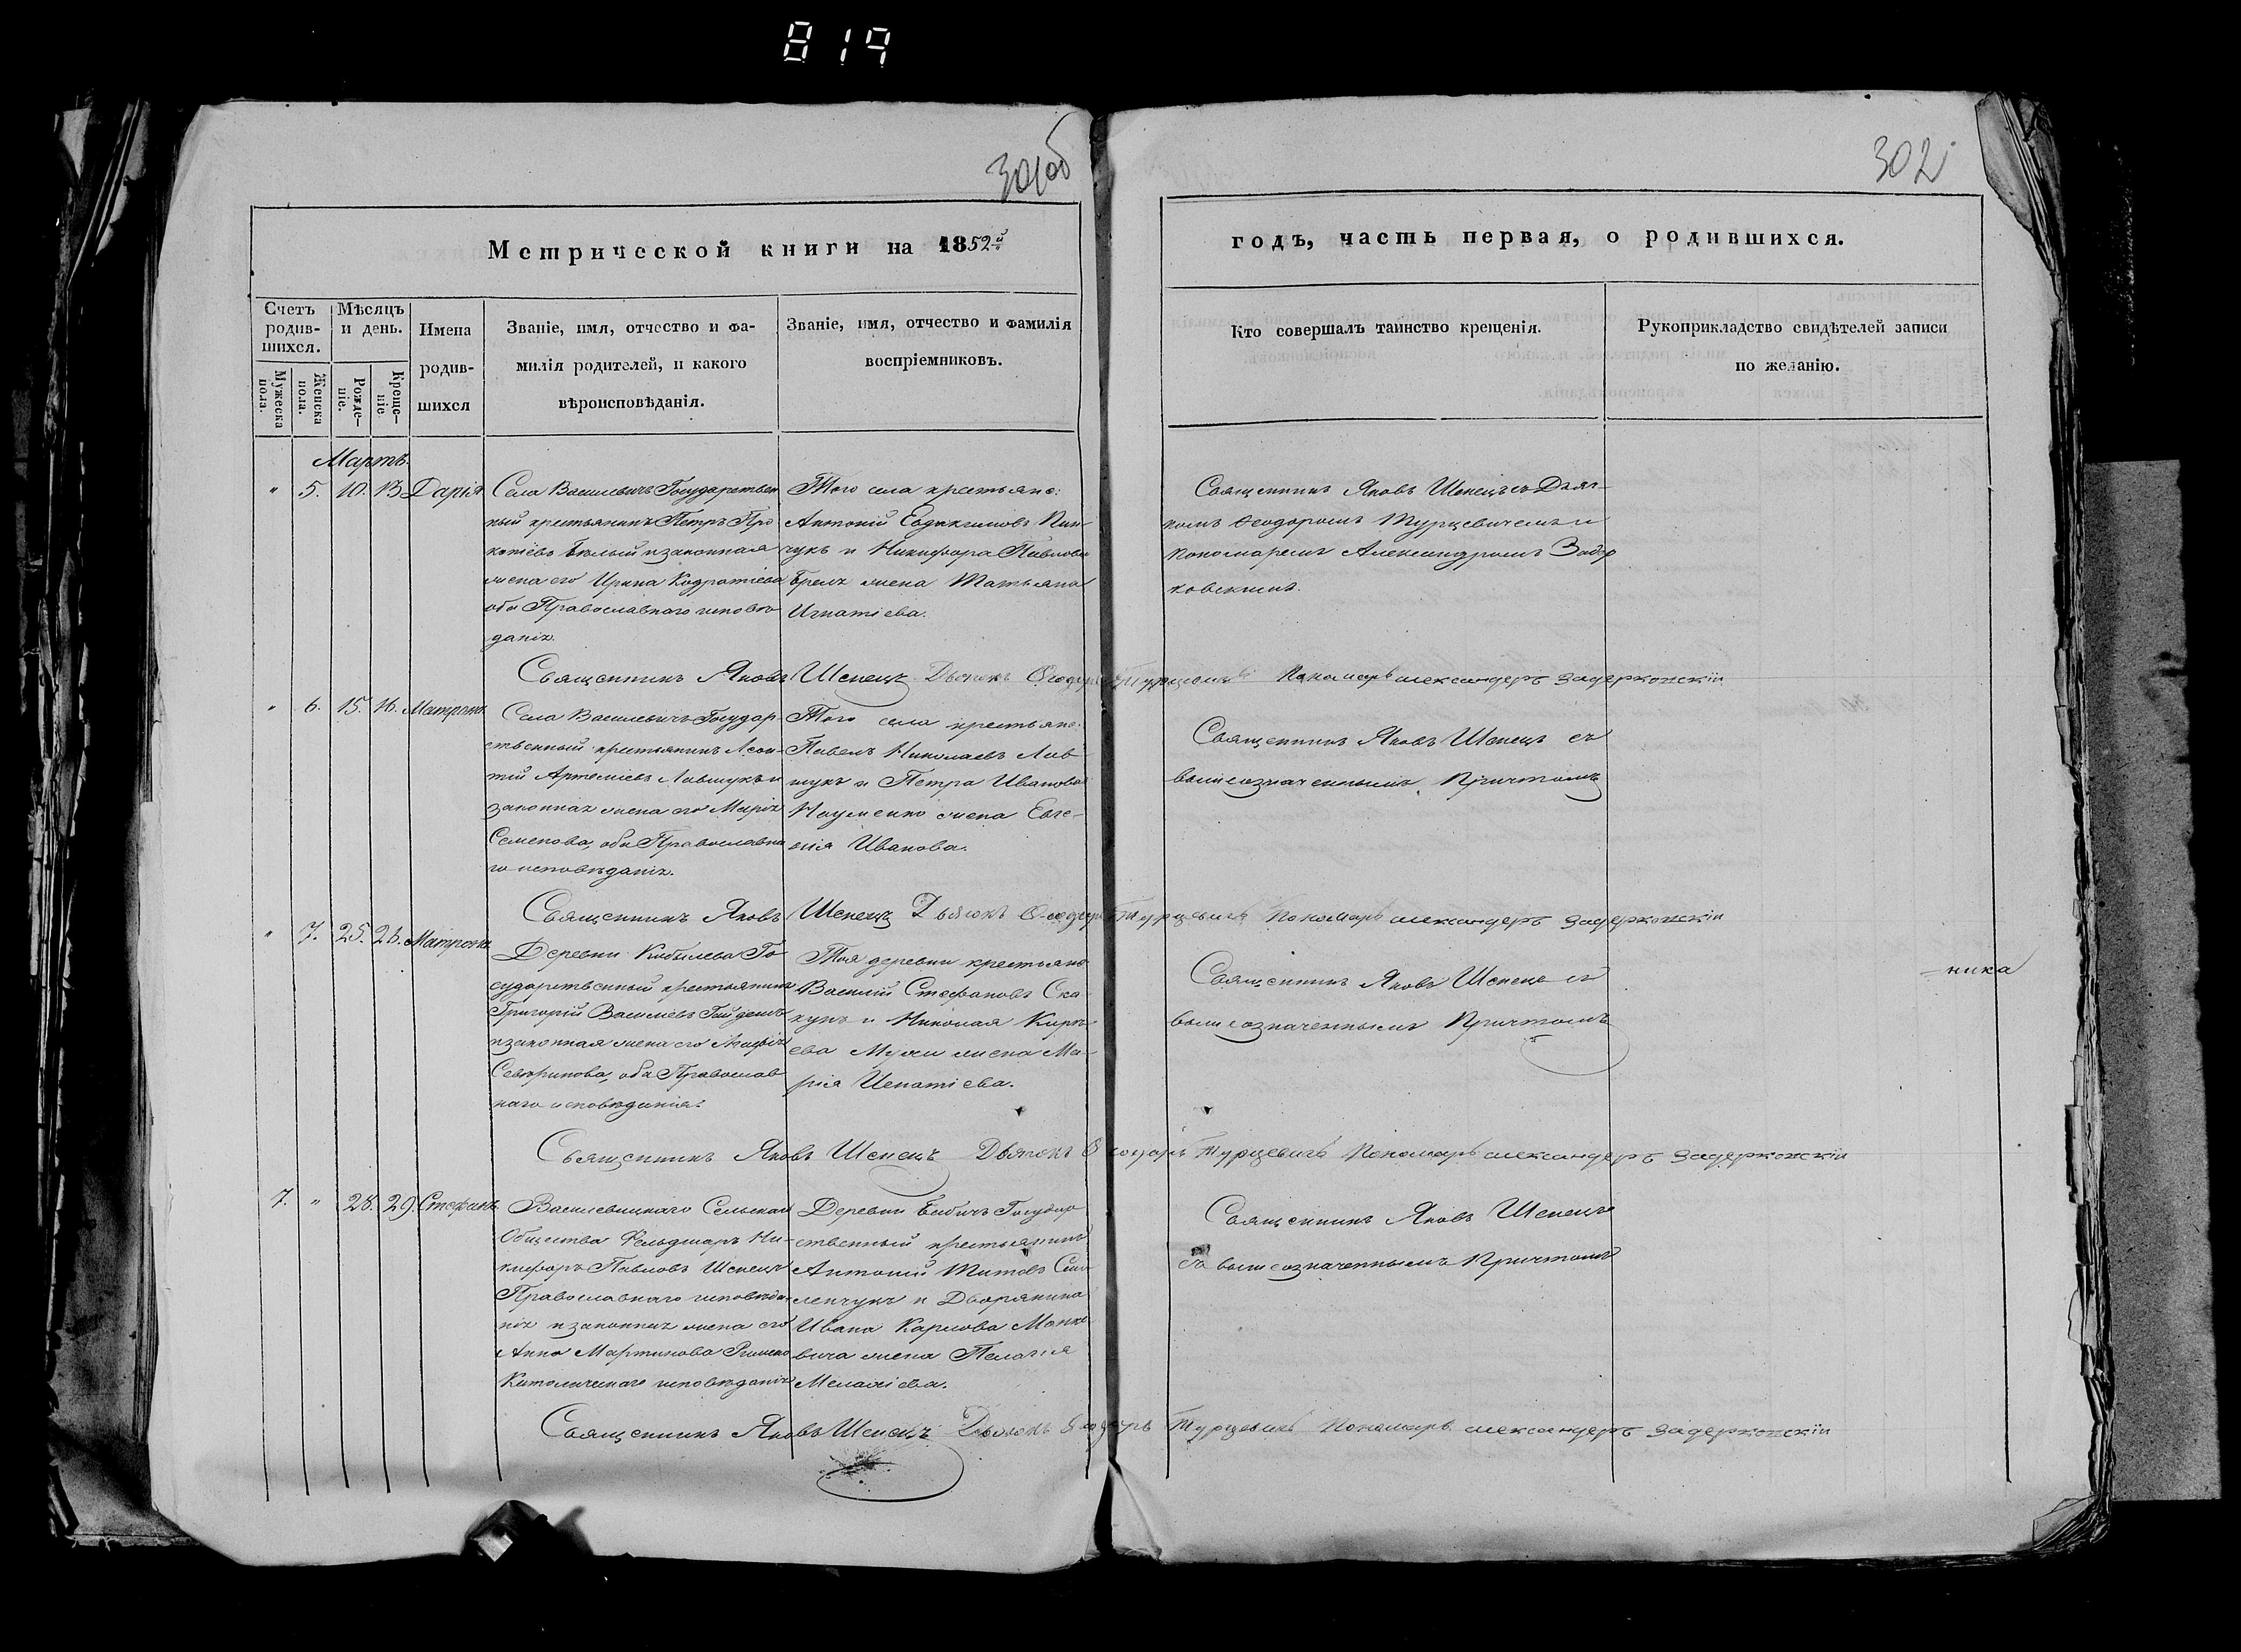 819
301об
302
Метрической книги на 1852й
годъ, часть первая, о родившихся.
Счетъ родив-шихся.
Мѣсяцъ и день.
Мужеска пола.
Женска пола.
Рожде-ніе.
Креще-ніе.
Имена
родив-
шихся
Званіе, имя, отчество и фа-
милія родителей, и какого
вѣроисповѣданія.
Званіе, имя, отчество и фамилія
воспріемниковъ.
Кто совершалъ таинство крещенія.
Рукоприкладство свидѣтелей записи
по желанію.
Мартъ.
" 5. 10. 13 Дарія
Села Василевичъ Государствен
ный крестьянинъ Петръ Про
копіевъ Бѣлый и законная
жена его Ирина Кодратіева
оба Православнаго исповѣ
данія.
Того села крестьяне:
Антоній Евдокимовъ Пин-
чукъ и Никифора Павлова
жена Татьяна
Игнатіева.
Священникъ Яковъ Шепецъ съ Дьяч-
комъ Ѳеодоромъ Турцевичемъ и
Пономаремъ Александромъ Задер
ковскимъ.
Священникъ Яковъ Шепецъ Дьячокъ Ѳеодоръ Турцевичъ Пономарь александеръ Задерковскій
" 6. 15. 16. Матрона
Села Василевичъ Государ-
ственный крестьянинъ Леон-
тій Артеміевъ и
законная жена его Марія
Семенова, оба Православна
го исповѣданія.
Того села крестьяне.
Павелъ Николаевъ
и Петра Иванова
Науменко жена Евге-
нія Иванова.
Священникъ Яковъ Шепецъ съ
вышеозначеннымъ Причтомъ
Священникъ Яковъ Шепецъ Дьячокъ Ѳеодоръ Турцевичъ Пономарь александеръ Задерковскій
" 7. 25. 26. Матрона
Деревни Кобылева Го
сударственный крестьянинъ
Григорій Василіевъ
и законная жена его
оба Православ
наго исповѣданія.
Тоя деревни крестьяне
Василій Стефановъ Ска
кунъ и Николая
жена Ма-
рія Ипатіева.
Священникъ Яковъ Шепецъ съ
вышеозначеннымъ Причтомъ
ника
Священникъ Яковъ Шепецъ Дьячокъ Ѳеодоръ Турцевичъ Пономарь александеръ Задерковскій
7. " 28. 29. Стефанъ
Василевицкаго Сельскаго
Общества Фельдшеръ Ни-
кифоръ Павловъ Шепецъ
Православнаго исповѣда
нія и законная жена его
Анна Мартинова Римско
Католическаго исповѣданія
Деревни Бабичъ Государ
ственный крестьянинъ
Антоній Титовъ
и Дворянина
Ивана Карлова
жена Пелагія
Священникъ Яковъ Шепецъ
съ вышеозначеннымъ Причтомъ
Священникъ Яковъ Шепецъ Дьячокъ Ѳеодоръ Турцевичъ Пономарь александеръ Задерковскій